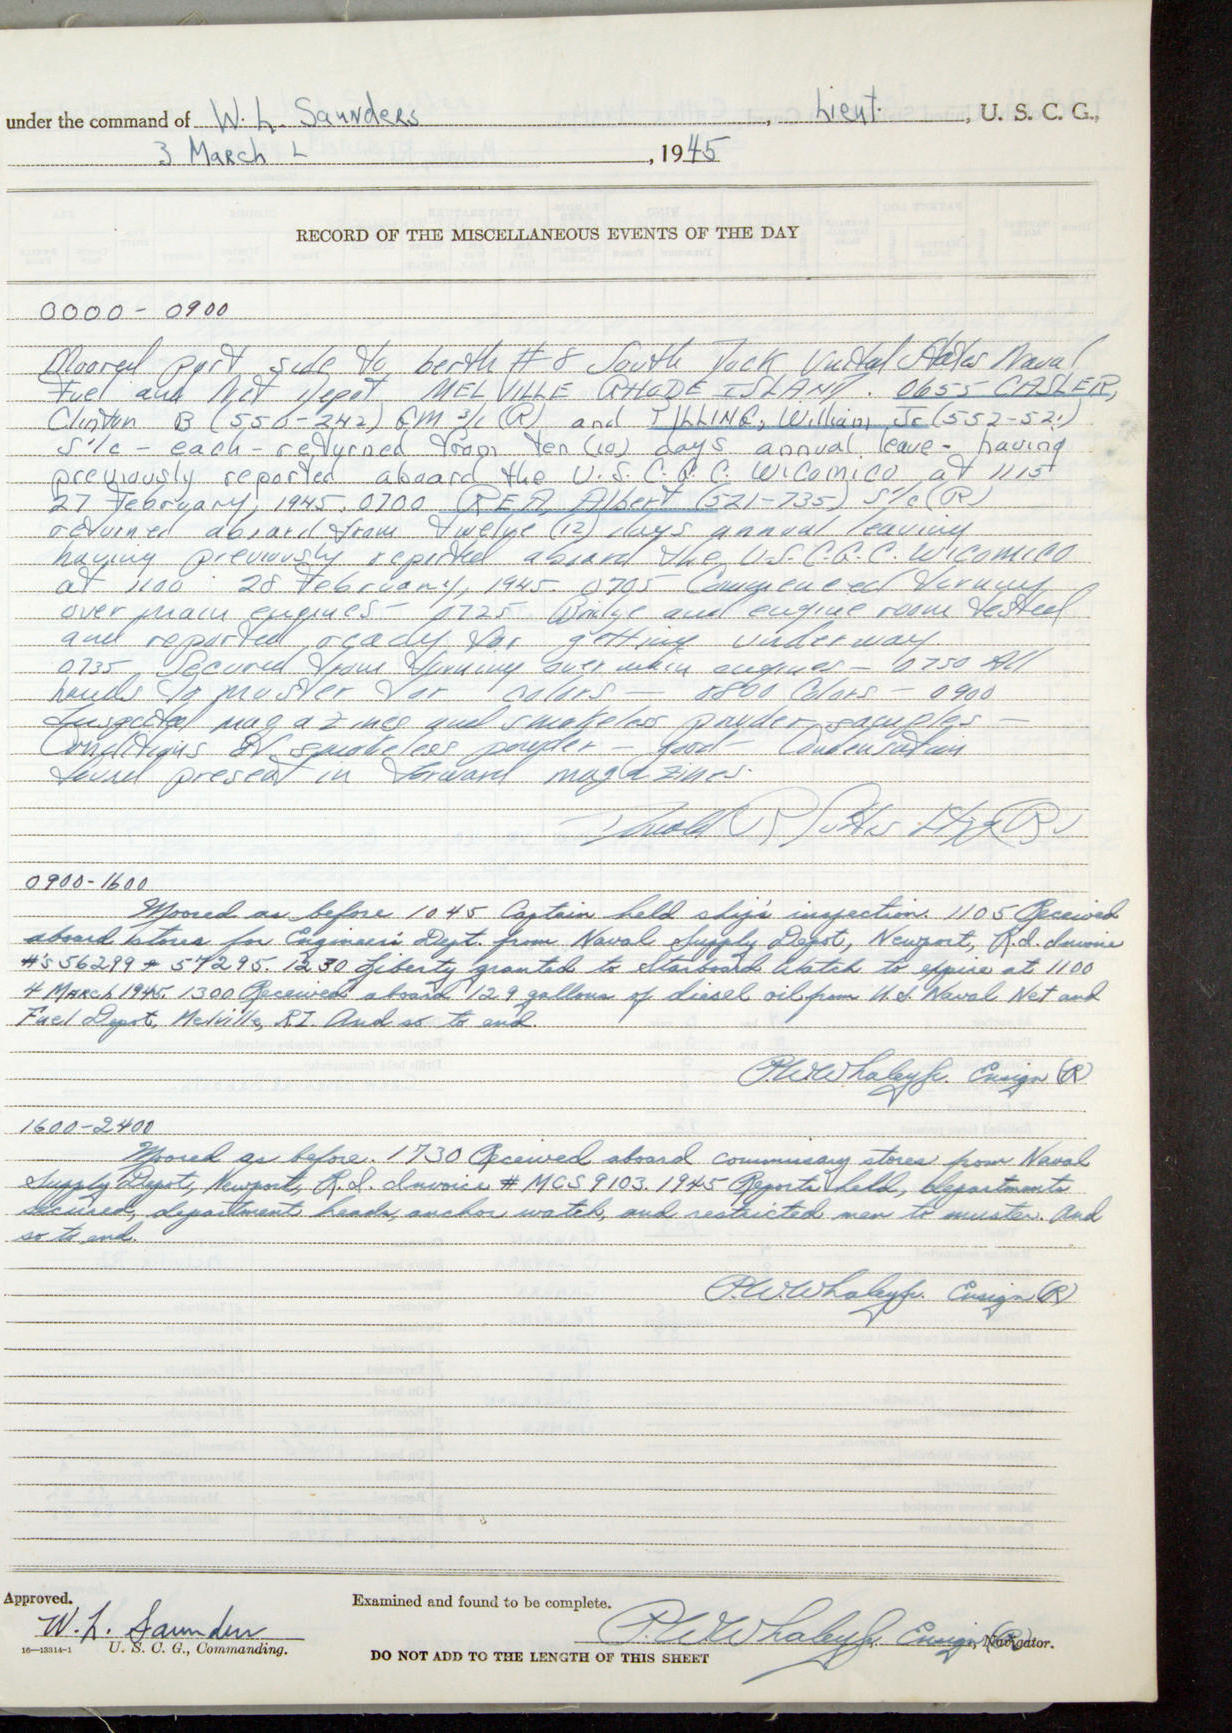 under the command of W. L. Saunders, Lieut., U. S. C. G.,
3 March, 1945
RECORD OF THE MISCELLANEOUS EVENTS OF THE DAY
0000 - 0900
Moored port side to berth # 8 South Dock United States Naval
Fuel and Net Depot MELVILLE RHODE ISLAND. 0655 CASLER,
Clinton B (550-242) GM 3/c (R) and William, Jr (552-521)
S1/c - each - returned from ten (10) days annual leave - having
previously reported aboard the U.S.C.G.C. Wicomico at 1115
27 February, 1945. 0700 REA Albert (521-735) S1/c (R)
returned aboard from twelve (12) days annual leaving
having previously reported aboard the U.S.C.G.C. Wicomico
at 1100 28 February, 1945. 0705 Commenced turning
over main engines - 0725 Bridge and engine room tested
and reported ready for getting underway
0735 Secured from turning over main engines - 0750 All
hands to muster for colors — 0800 Colors - 0900
Inspected magazines and smokeless powder samples —
Conditions of smokeless powder - good - Condensation
found present in forward magazines.
(R)
0900-1600
Moored as before 1045 Captain held ship's inspection. 1105 Received
aboard stores for Engineer's Dept. from Naval Supply Depot, Newport, R.I. Invoice
#'s 56299 + 57295. 1230 Liberty granted to Starboard Watch to expire at 1100
4 March 1945. 1300 Received aboard 129 gallons of diesel oil from U.S. Naval Net and
Fuel Depot, Melville, RI. And so to end.
P.W. Whaley Jr. Ensign (R)
1600-2400
Moored as before. 1730 Received aboard commissary stores from Naval
Supply Depot, Newport, R.I. Invoice # MCS 9103. 1945 Reports held, departments
secured, department heads, anchor watch, and restricted men to muster. And
so to end.
P.W. Whaley Jr. Ensign (R)
Approved.
Examined and found to be complete.
W. L. Saunders
P.W. Whaley Jr. Ensign (R), Navigator.
16—13314-1 U. S. C. G., Commanding.
DO NOT ADD TO THE LENGTH OF THIS SHEET